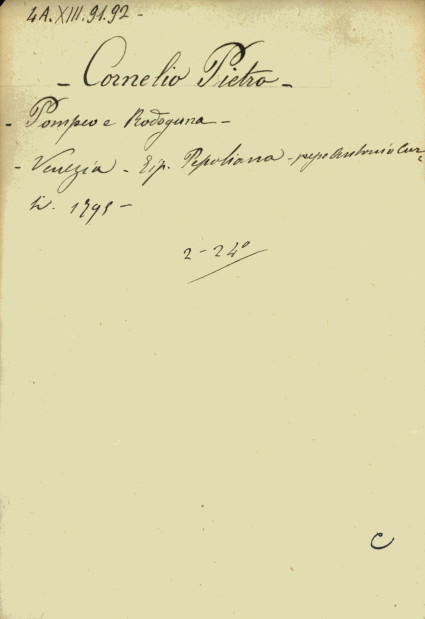 4A.XIII.91.92-
- Cornelio Pietro -
- Pompeo e Rodoguna -
- Venezia - Tip. Pepoliana - presso Antonio Cur=
ti. 1795 -
2 - 24°
C